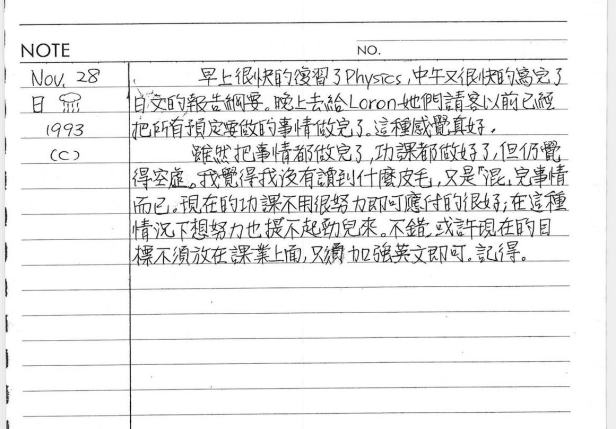 NOTE NO.
Nov. 28 早上很快的復習了Physics,中午又很快的寫完了
日 日文的報告綱要。晚上去給Loron她們請客以前已經
1993 把所有預定要做的事情做完了。這種感覺真好。
(C) 雖然把事情都做完了,功課都做好了,但仍覺
得空虛。我覺得我沒有讀到什麼皮毛,又是「混」完事情
而已。現在的功課不用很努力即可應付的很好;在這種
情況下想努力也提不起勁兒來。不錯,或許現在的目
標不須放在課業上面,只須加強英文即可。記得。